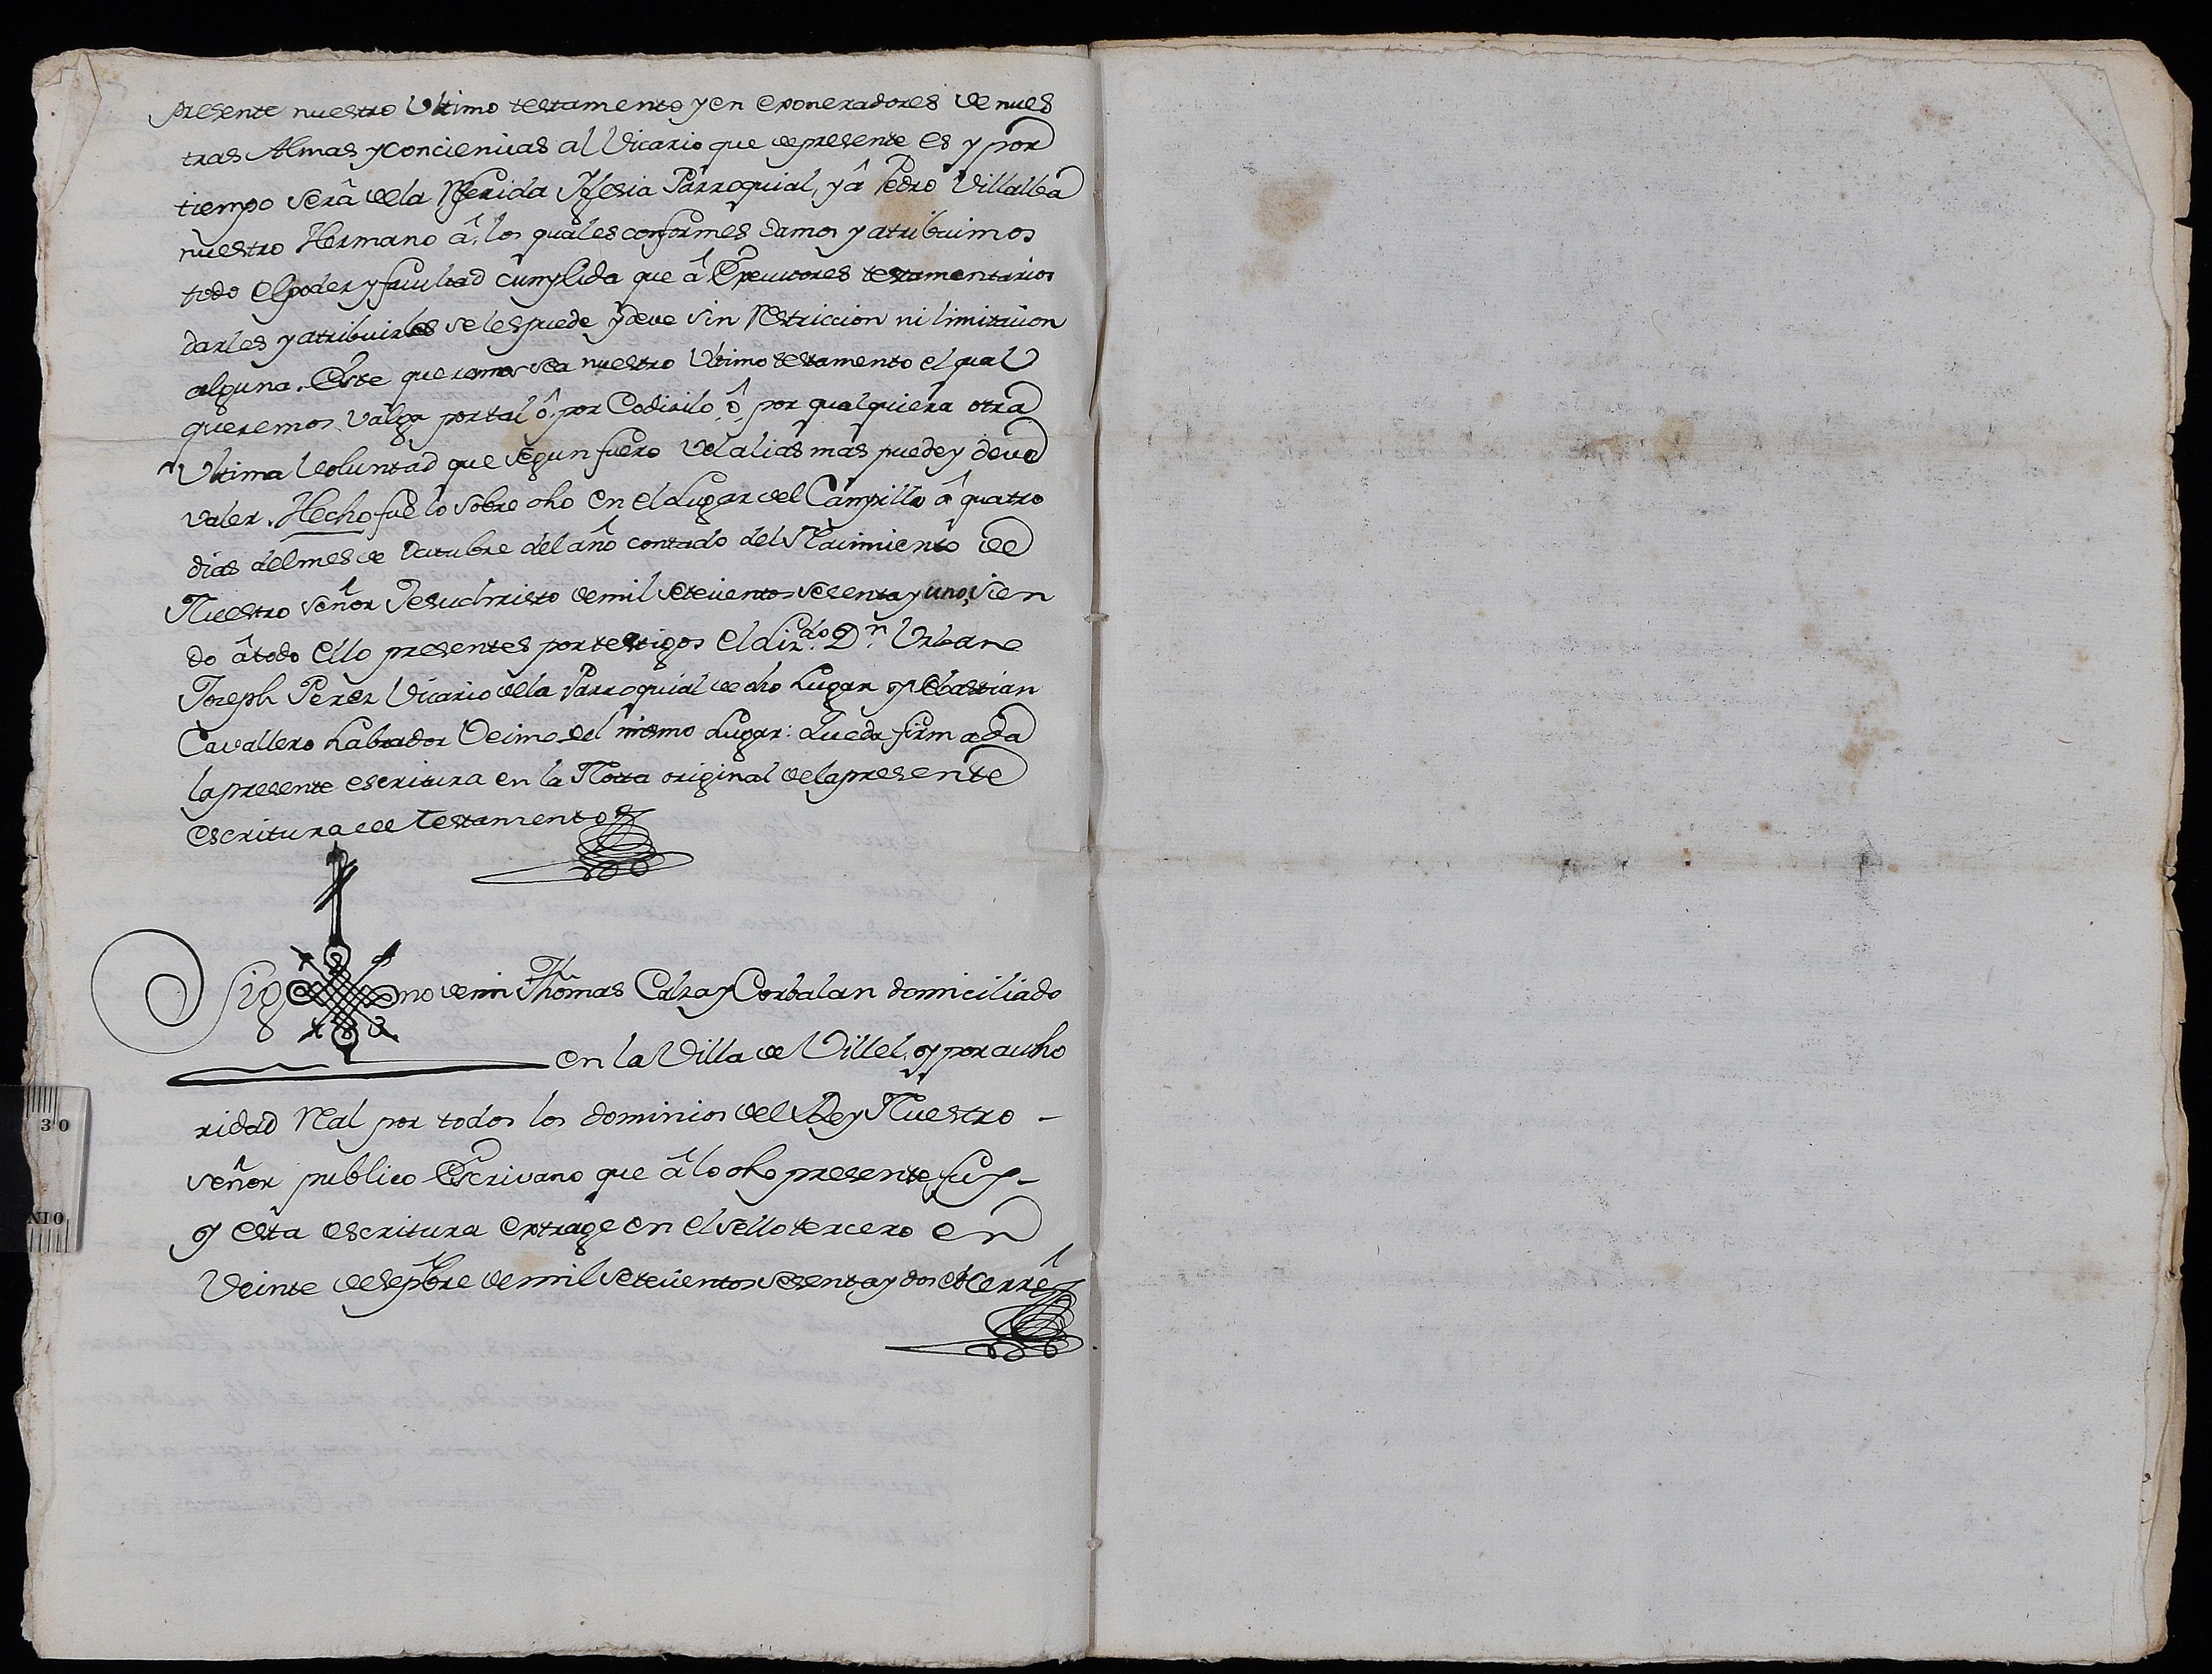 presente nuestro Ultimo testamento y en exoneradores de nues
tras Almas y conciencias al Vicario que de presente es y por
tiempo serà de la Rferida Iglesia Parroquial, y â Pedro Villalba
nuestro Hermano â los quales conformes damos y atribuimos
todo el poder y facultad cumplida que â Executores testamentarios
darles y atribuirles se les puede y deve sin Restriccion ni limitacion
alguna. Este queremos sea nuestro Ultimo testamento el qual
queremos valga por tal ô por Codicilo ô por qualquiera otra
Ultima Voluntad que segun fuero Vel alias mas puede y deve
valer. Hecho fue lo sobre dho en el Lugar del Campillo â quatro
dias del mes de Octubre del año contado del Nacimiento de
Nuestro Señor Jesuchristo de mil setecientos sesenta y uno, sien
do â todo ello presentes por testigos el Liz.do D.n Urbano
Joseph Perez Vicario de la Parroquial de dho Lugar y Sebastian
Cavallero Labrador Vecino del mismo Lugar: Queda firmada
la presente escritura en la Notta original de la presente
escritura de Testamento
Sig no de mi Thomas Calza y Corbalan domiciliado
en la Villa de Villel, y por autho
ridad Real por todos los dominios del Rey Nuestro -
Señor publico Escrivano que â lo dho presente fuy -
y esta escritura extrage en el sello tercero en
Veinte de Sepbre de mil setecientos sesenta y dos et cerrê
30